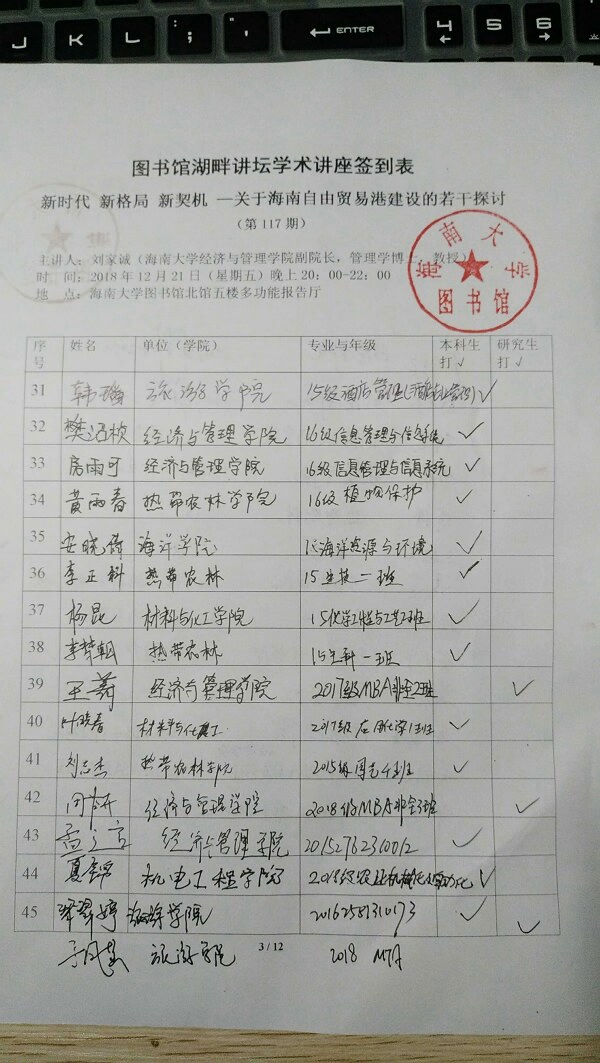 J K L ; : " ' ← ENTER 4 ← 5 6 →
图书馆湖畔讲坛学术讲座签到表
新时代 新格局 新契机 —关于海南自由贸易港建设的若干探讨
（第 117 期）
主讲人：刘家诚（海南大学经济与管理学院副院长，管理学博士，教授）
时 间：2018 年 12 月 21 日（星期五）晚上 20：00-22：00
地 点：海南大学图书馆北馆五楼多功能报告厅
海南大学
图书馆
序号 姓名 单位（学院） 专业与年级 本科生打√ 研究生打√
31 韩 旅游学院 15级酒店管理 √
32 樊 经济与管理学院 16级信息管理与信息系统 √
33 房雨可 经济与管理学院 16级信息管理与信息系统 √
34 黄雨春 热带农林学院 16级植物保护 √
35 安晓 海洋学院 海洋资源与环境 √
36 李正科 热带农林 15生技一班 √
37 杨昆 材料与化工学院 15化学工程与工艺2班 √
38 李梦 热带农林 15生科一班 √
39 王 经济与管理学院 2017级MBA非全2班 √
40 叶晓春 材料与化工 2017级应用化学1班 √
41 刘志杰 热带农林学院 2015级园艺 班 √
42 闫 经济与管理学院 2018级MBA非全3班 √
43 孟 经济与管理学院 20152762310012 √
44 夏 机电工程学院 2018级农业机械化 自动化 √
45 婷 旅游学院 20162581310173 √ √
于凤 旅游学院 2018 MTA
3 / 12